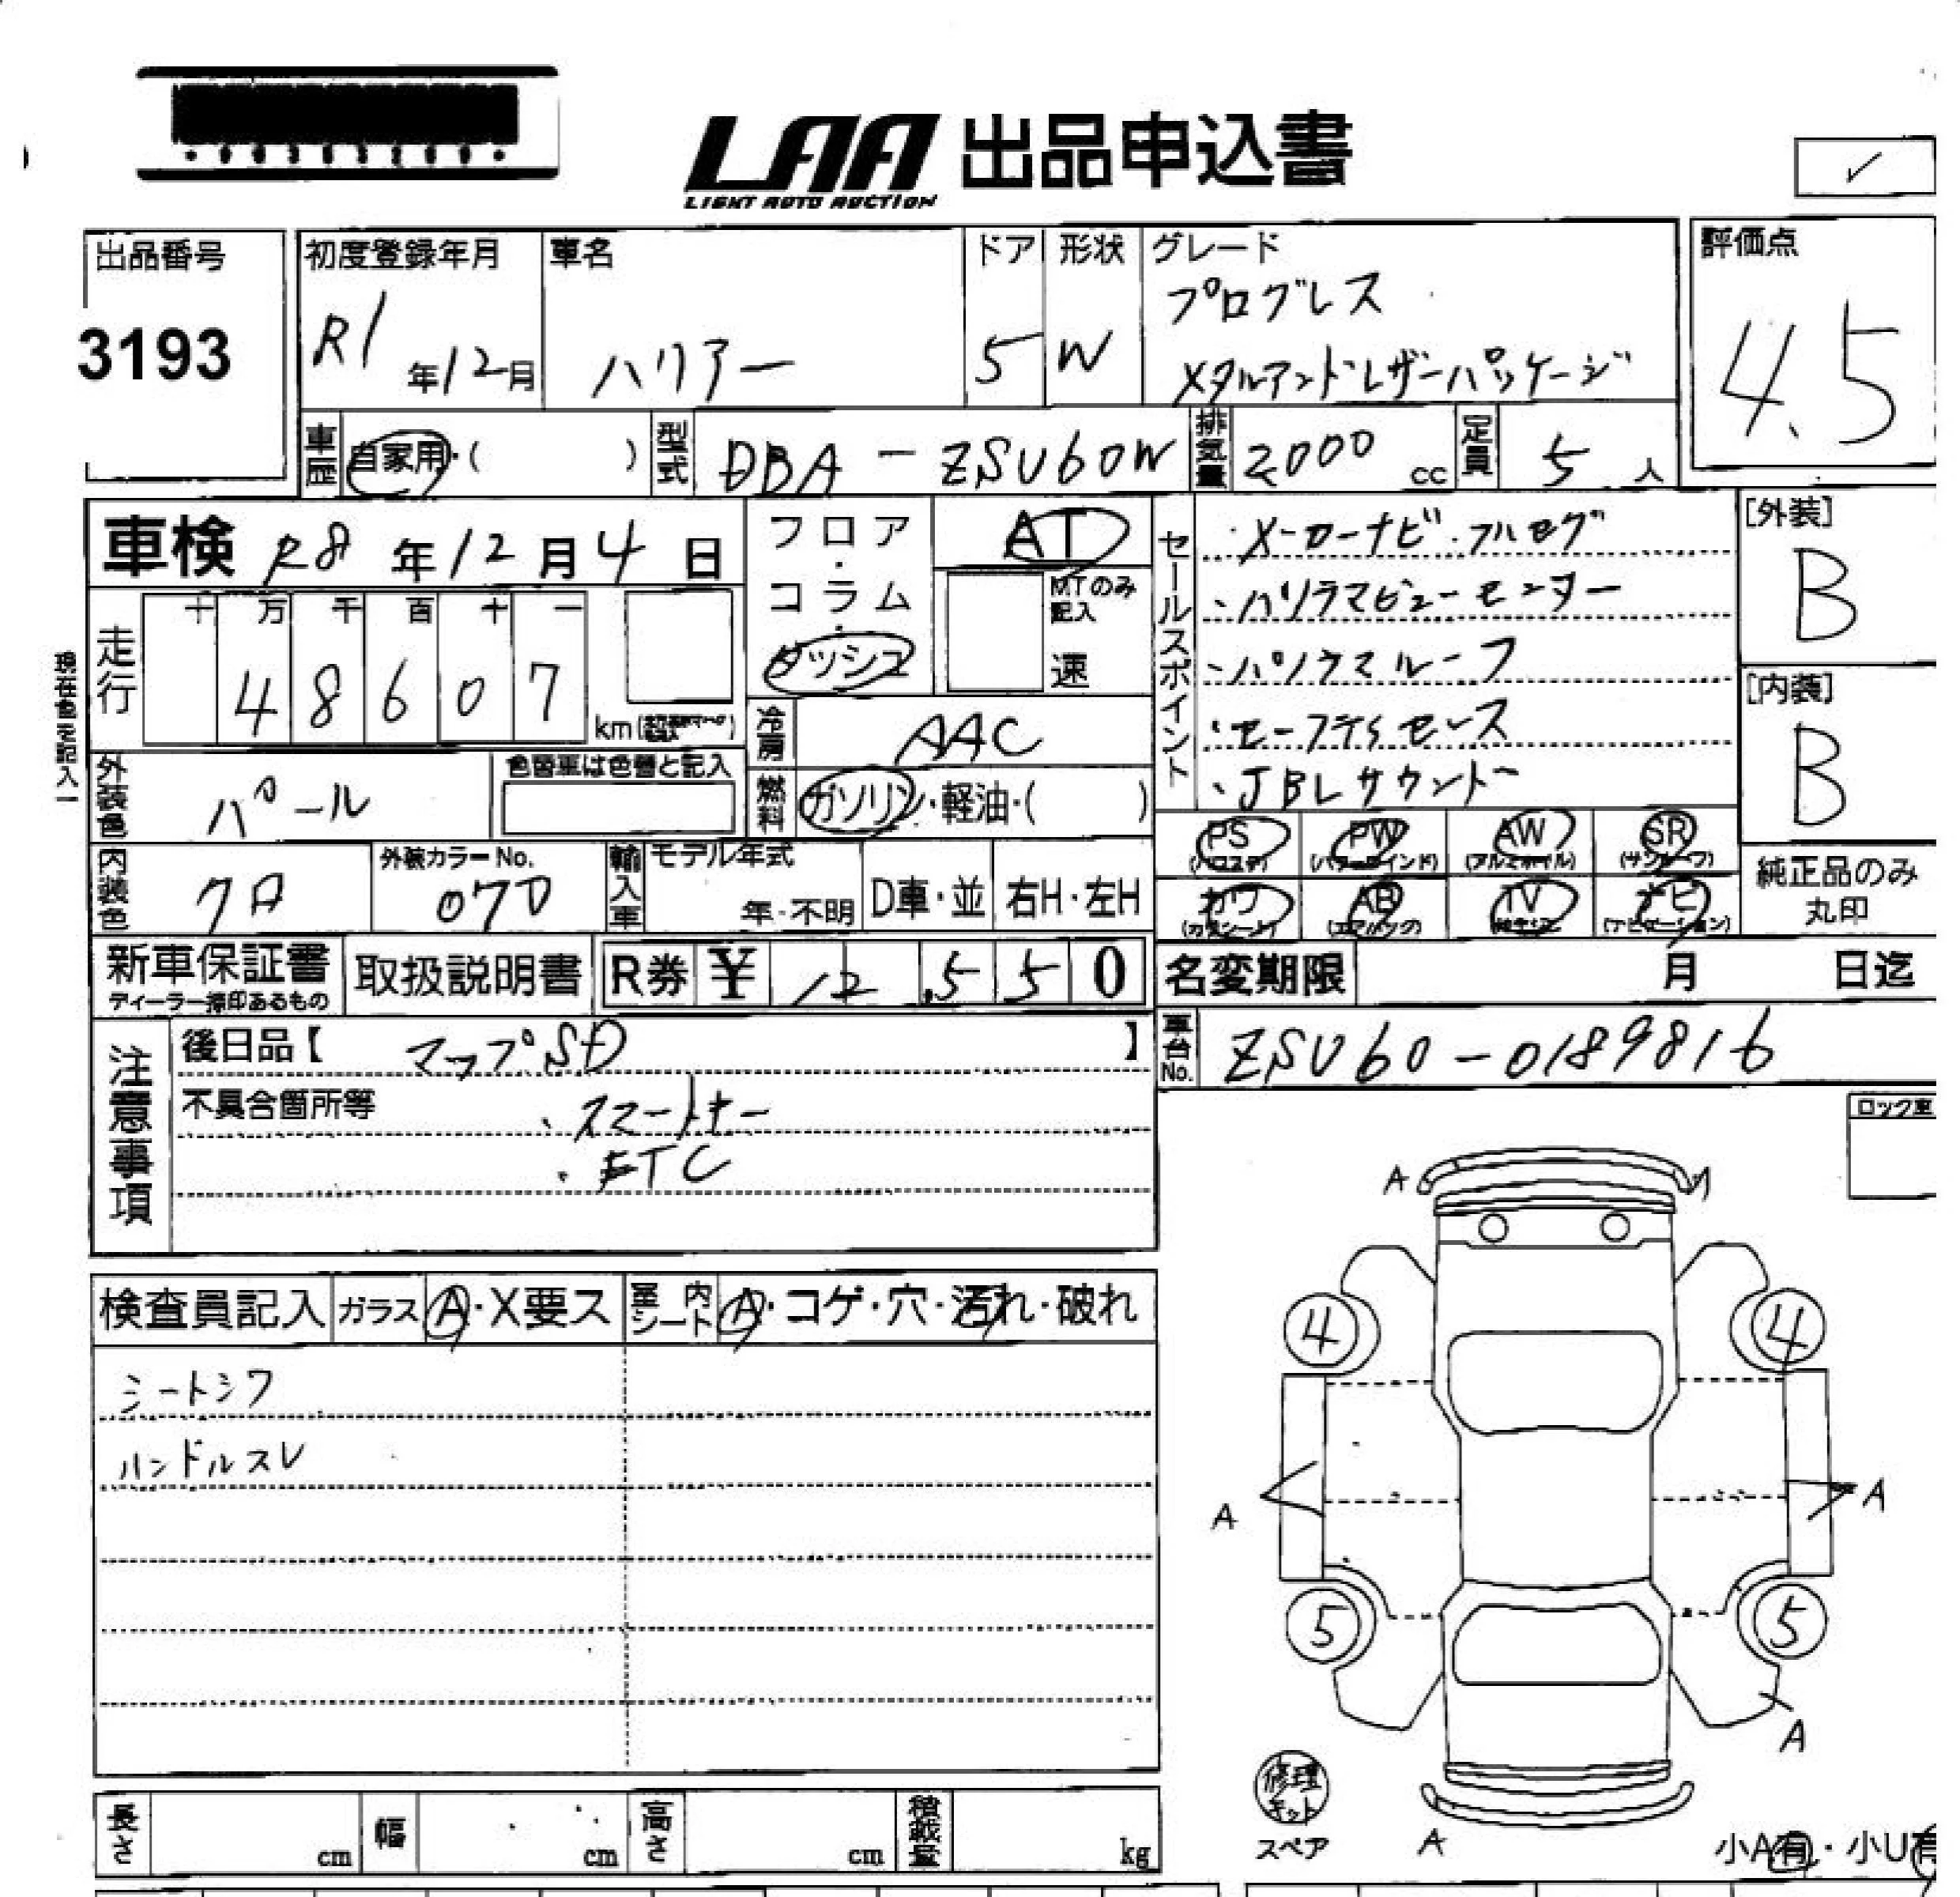 LAA 出品申込書
LIGHT AUTO AUCTION
✓
出品番号
3193
初度登録年月
R1年12月
車名
ハリアー
ドア
5
形状
W
グレード
プログレス
メタルアンドレザーパッケージ
評価点
4.5
車歴
自家用・( )
型式
DBA-ZSU60W
排気量
2000cc
定員
5人
車検 R8年12月4日
フロア・コラム・ダッシュ
AT
MTのみ記入
速
セールスポイント
・メーカーナビ.フルセグ
・パノラマビューモニター
・パノラマルーフ
・セーフティセンス
・JBLサウンド
[外装]
B
[内装]
B
現在色を記入
走行
十 万 千 百 十 一
4 8 6 0 7
km
冷房
AAC
外装色
パール
色替車は色替と記入
燃料
ガソリン・軽油・( )
PS
PW
AW
SR
(サンルーフ)
カワ
AB
(エアバック)
TV
ナビ
(ナビゲーション)
純正品のみ
丸印
内装色
クロ
外装カラーNo.
070
輸入車
モデル年式
年・不明
D車・並
右H・左H
新車保証書
ディーラー捺印あるもの
取扱説明書
R券 ¥ 12,550
名変期限 月 日迄
注意事項
後日品【 マップSD 】
不具合箇所等
・スマートキー
・ETC
車台No.
ZSU60-0189816
ロック車
検査員記入
ガラス
A・X要ス
室内シート
A・コゲ・穴・汚れ・破れ
シートシワ
ハンドルスレ
A
4
4
A
A
5
5
A
A
修理キット
スペア
小A有・小U有
長さ cm
幅 cm
高さ cm
積載量 kg